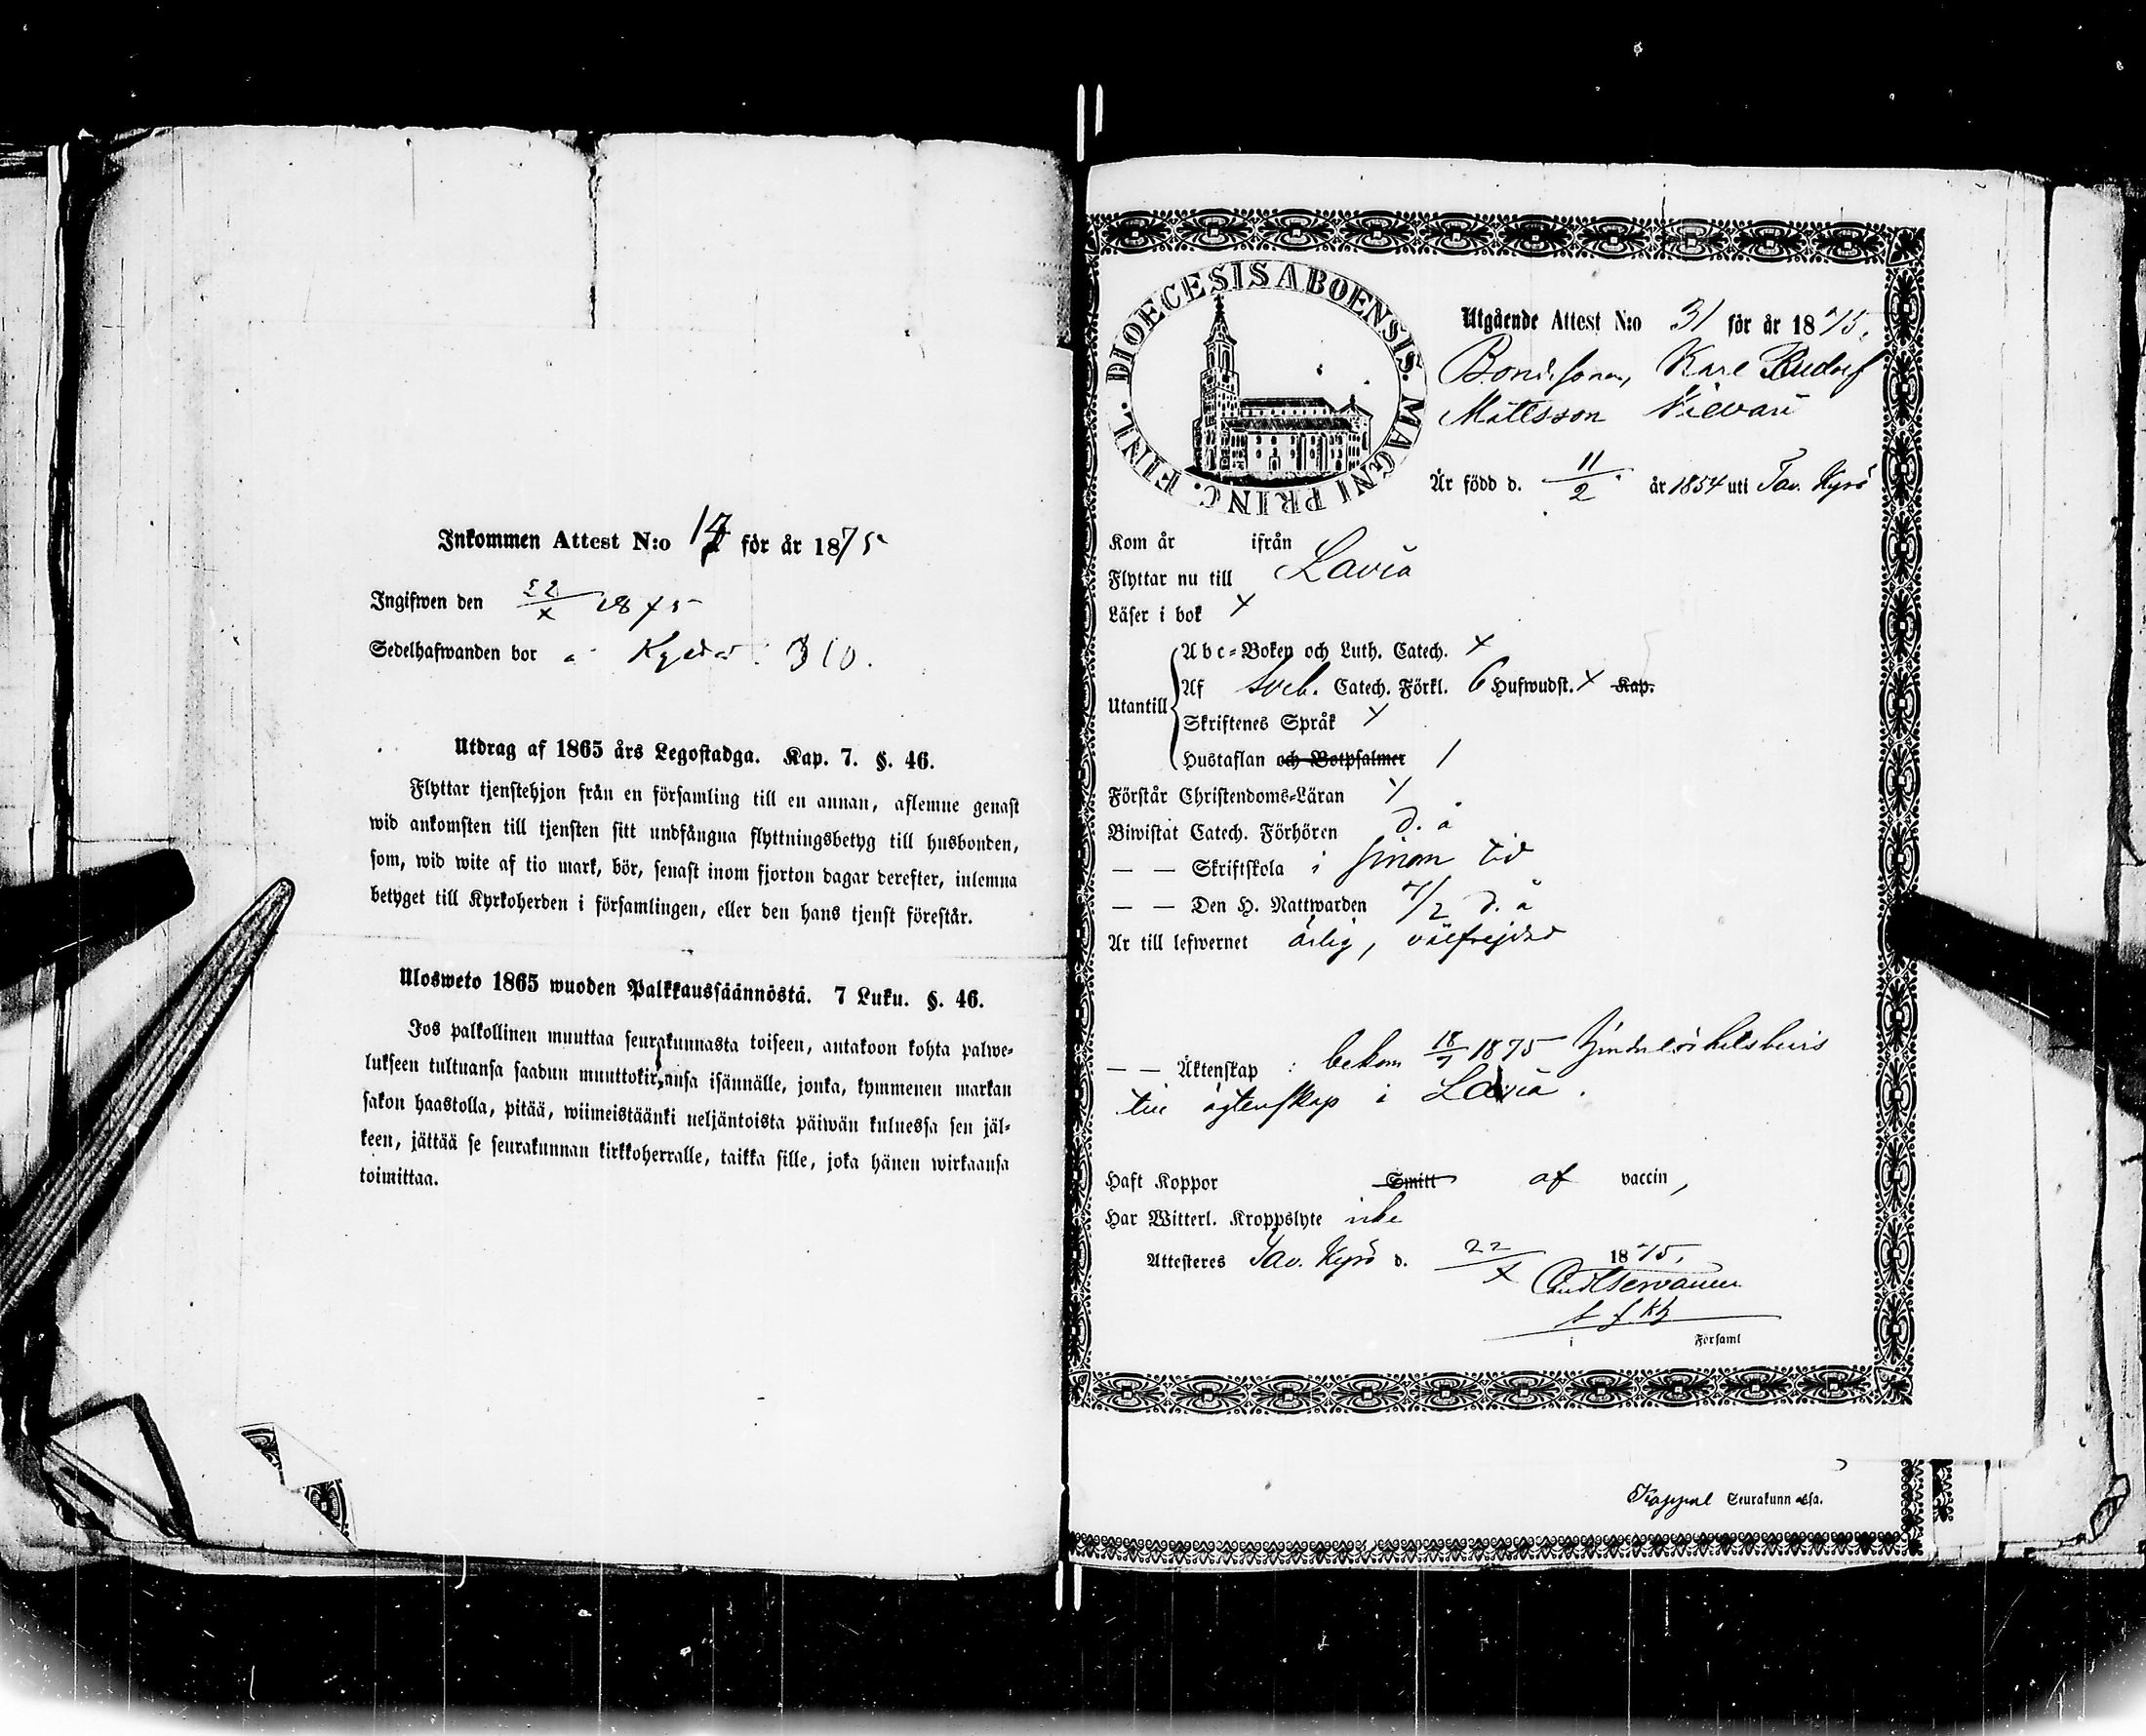 Inkommen Attest N:o 17 för år 1875
Ingifwen den 22/X 1875
Sedelhafwanden bor å 310.
Utdrag af 1865 års Legostadga. Kap. 7. §. 46.
Flyttar tjenstehjon från en församling till en annan, aflemne genast
wid ankomsten till tjensten sitt undfångna flyttningsbetyg till husbonden,
som, wid wite af tio mark, bör, senast inom fjorton dagar derefter, inlemna
betyget till Kyrkoherden i församlingen, eller den hans tjenst förestår.
Ulosweto 1865 wuoden Palkkaussäännöstä. 7 Luku. §. 46.
Jos palkollinen muuttaa seurakunnasta toiseen, antakoon kohta palwe-
lukseen tultuansa saadun muuttokirjansa isännälle, jonka, kymmenen markan
sakon haastolla, pitää, wiimeistäänki neljäntoista päiwän kuluessa sen jäl-
keen, jättää se seurakunnan kirkkoherralle, taikka sille, joka hänen wirkaansa
toimittaa.
DIOECESIS ABOENSIS. MAGNI PRINC. FINL.
Utgående Attest N:o 31 för år 1875.
Bondesonen, Karl Rudolf
Mattsson
Är född d. 11/2 år 1854 uti Tav. Kyrö
Kom år ifrån
Flyttar nu till Lavia
Läser i bok X
Utantill
Abc-Boken och Luth. Catech. X
Af Sveb. Catech. Förkl. 6 Hufwudst. X Kap.
Skriftenes Språk X
Hustaflan och Botpsalmer 1
Förstår Christendoms-Läran X
Biwistat Catech. Förhören d. å
— — Skriftskola i sinom tid
— — Den H. Nattwarden 7/2 d. å
Är till lefwernet ärlig, välfrejdad
— — Äktenskap : bekom 18/7 1875 hinderslöshetsbevis
till ägtenskap i Lavia.
Haft Koppor Smitt af vaccin,
Har Witterl. Kroppslyte icke
Attesteres Tav. Kyrö d. 22/X 1875.
i Forsaml
Kappel Seurakunn assa.